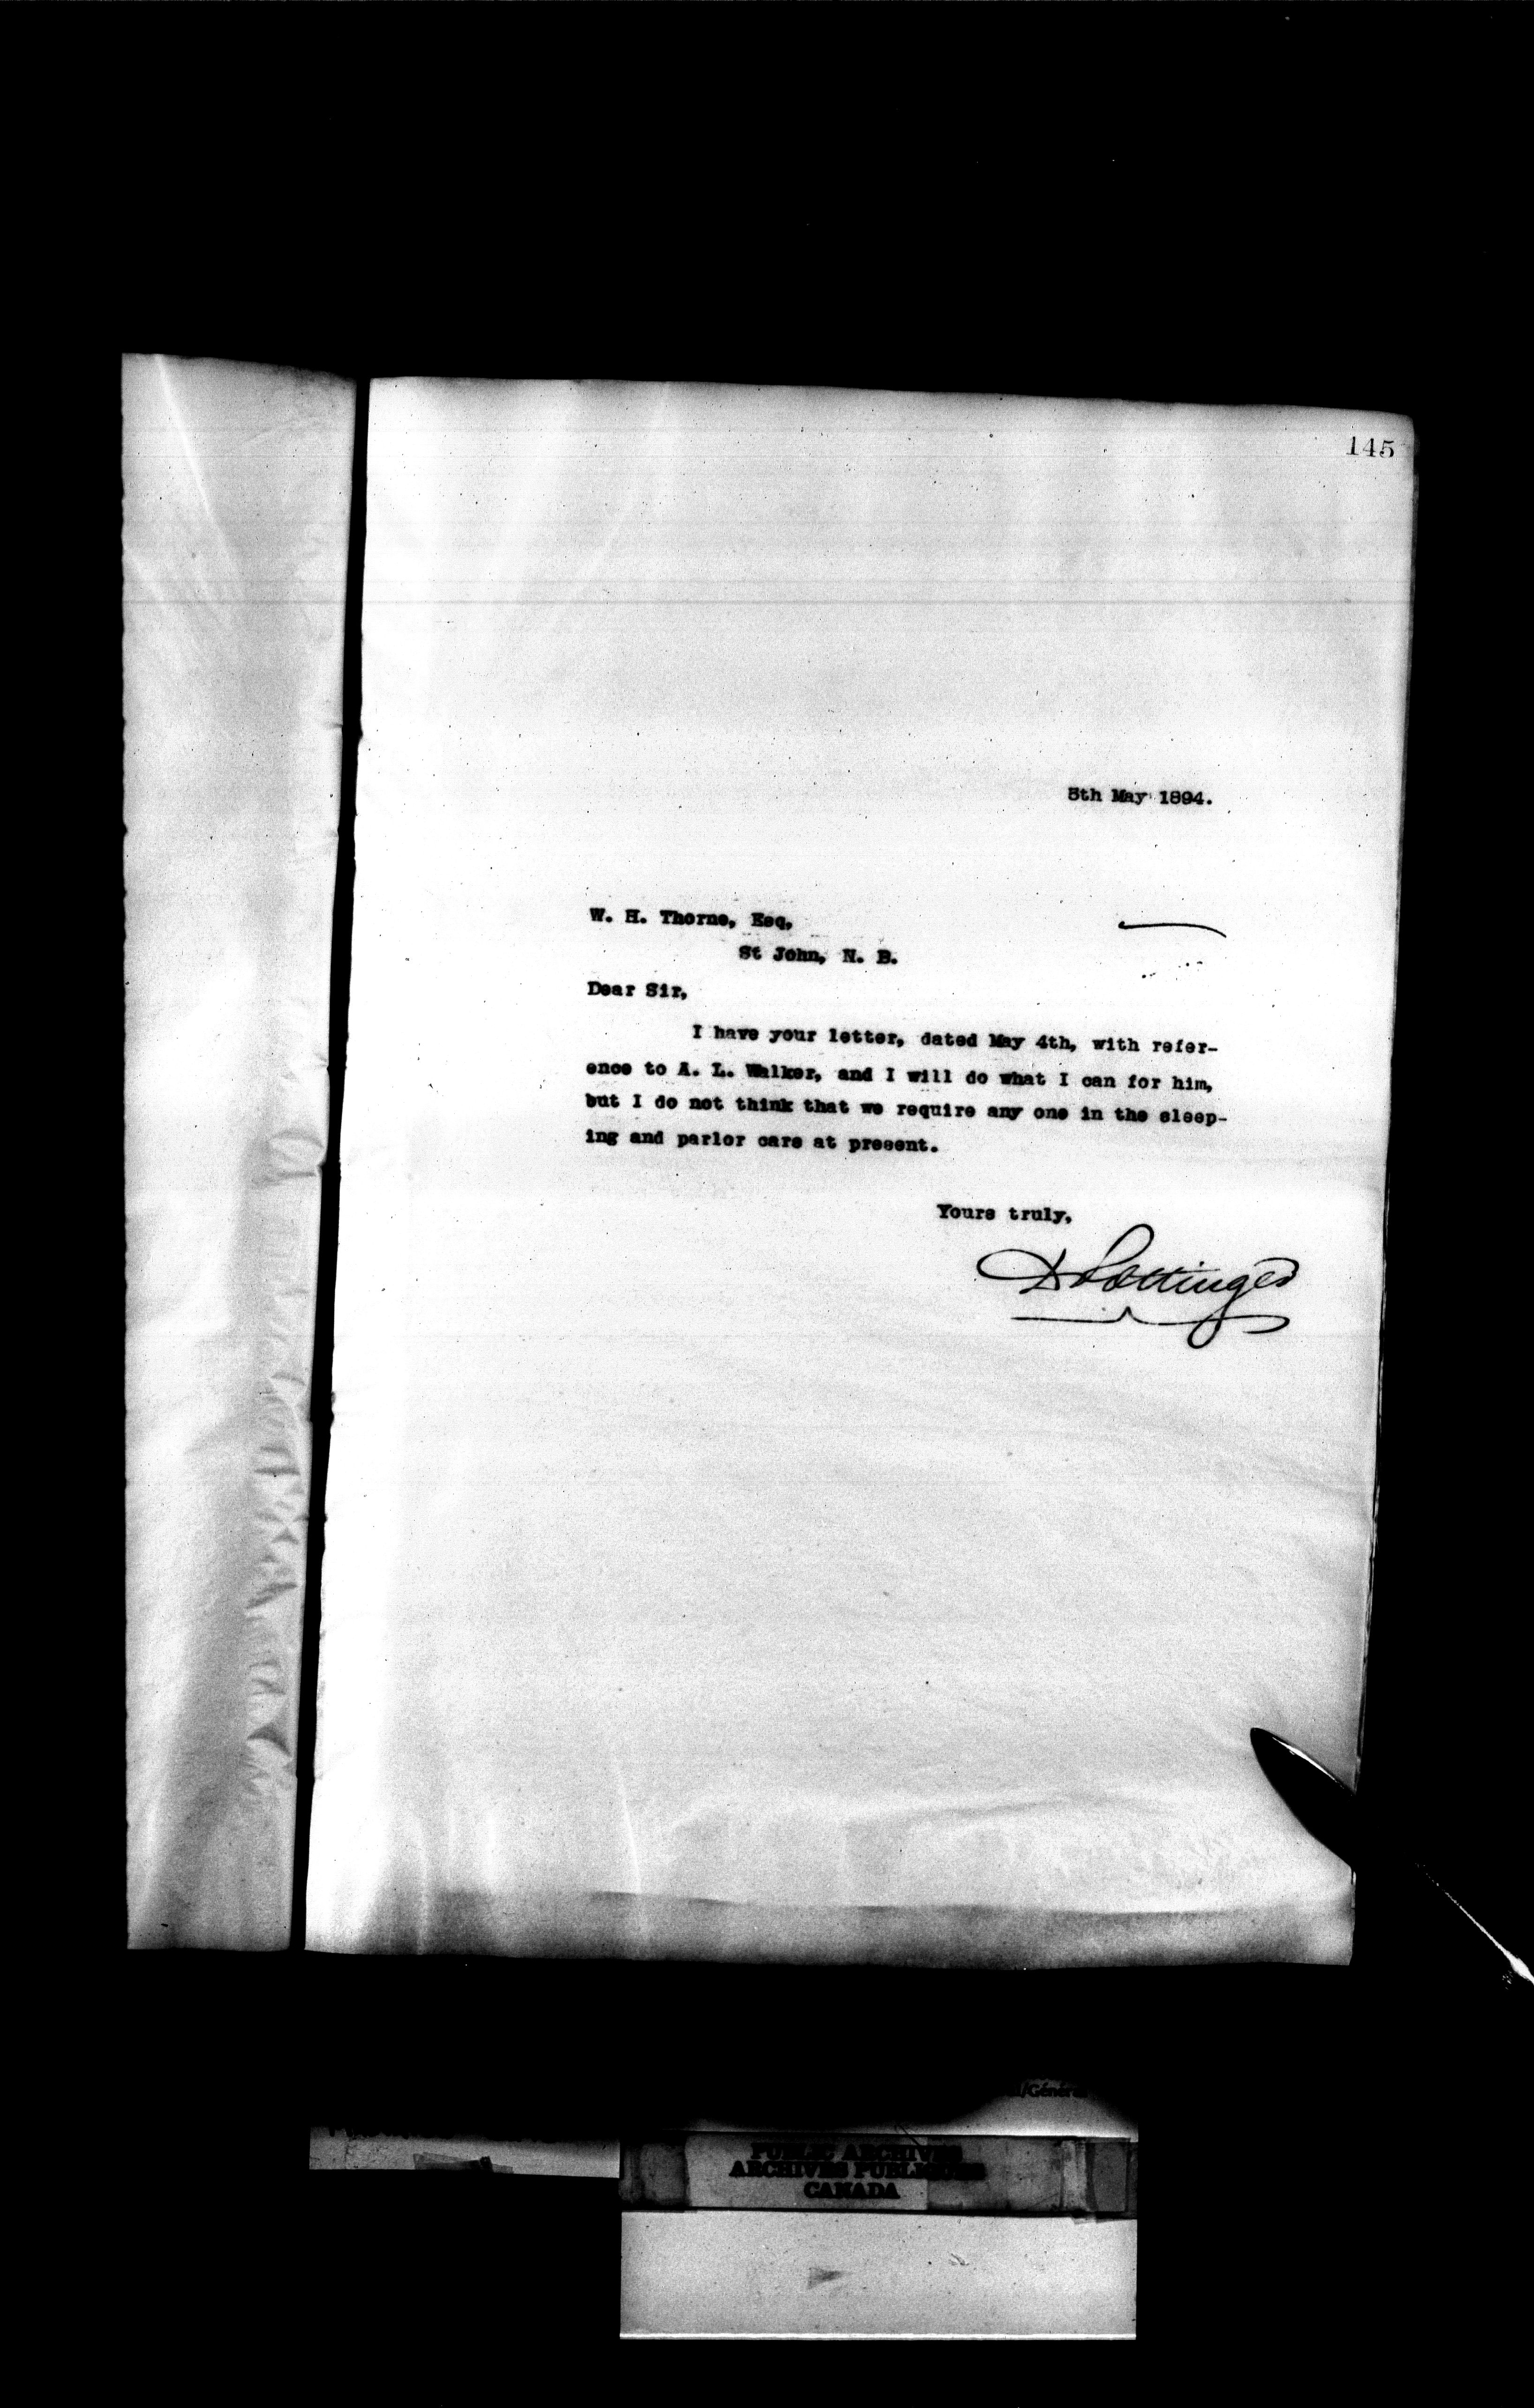 145
5th May 1894.
W. H. Thorne, Esq,
St John, N. B.
Dear Sir,
I have your letter, dated May 4th, with refer-
ence to A. L. Walker, and I will do what I can for him,
but I do not think that we require any one in the sleep-
ing and parlor cars at present.
Yours truly,
D Pottinger
PUBLIC ARCHIVES
ARCHIVES PUBLIQUES
CANADA